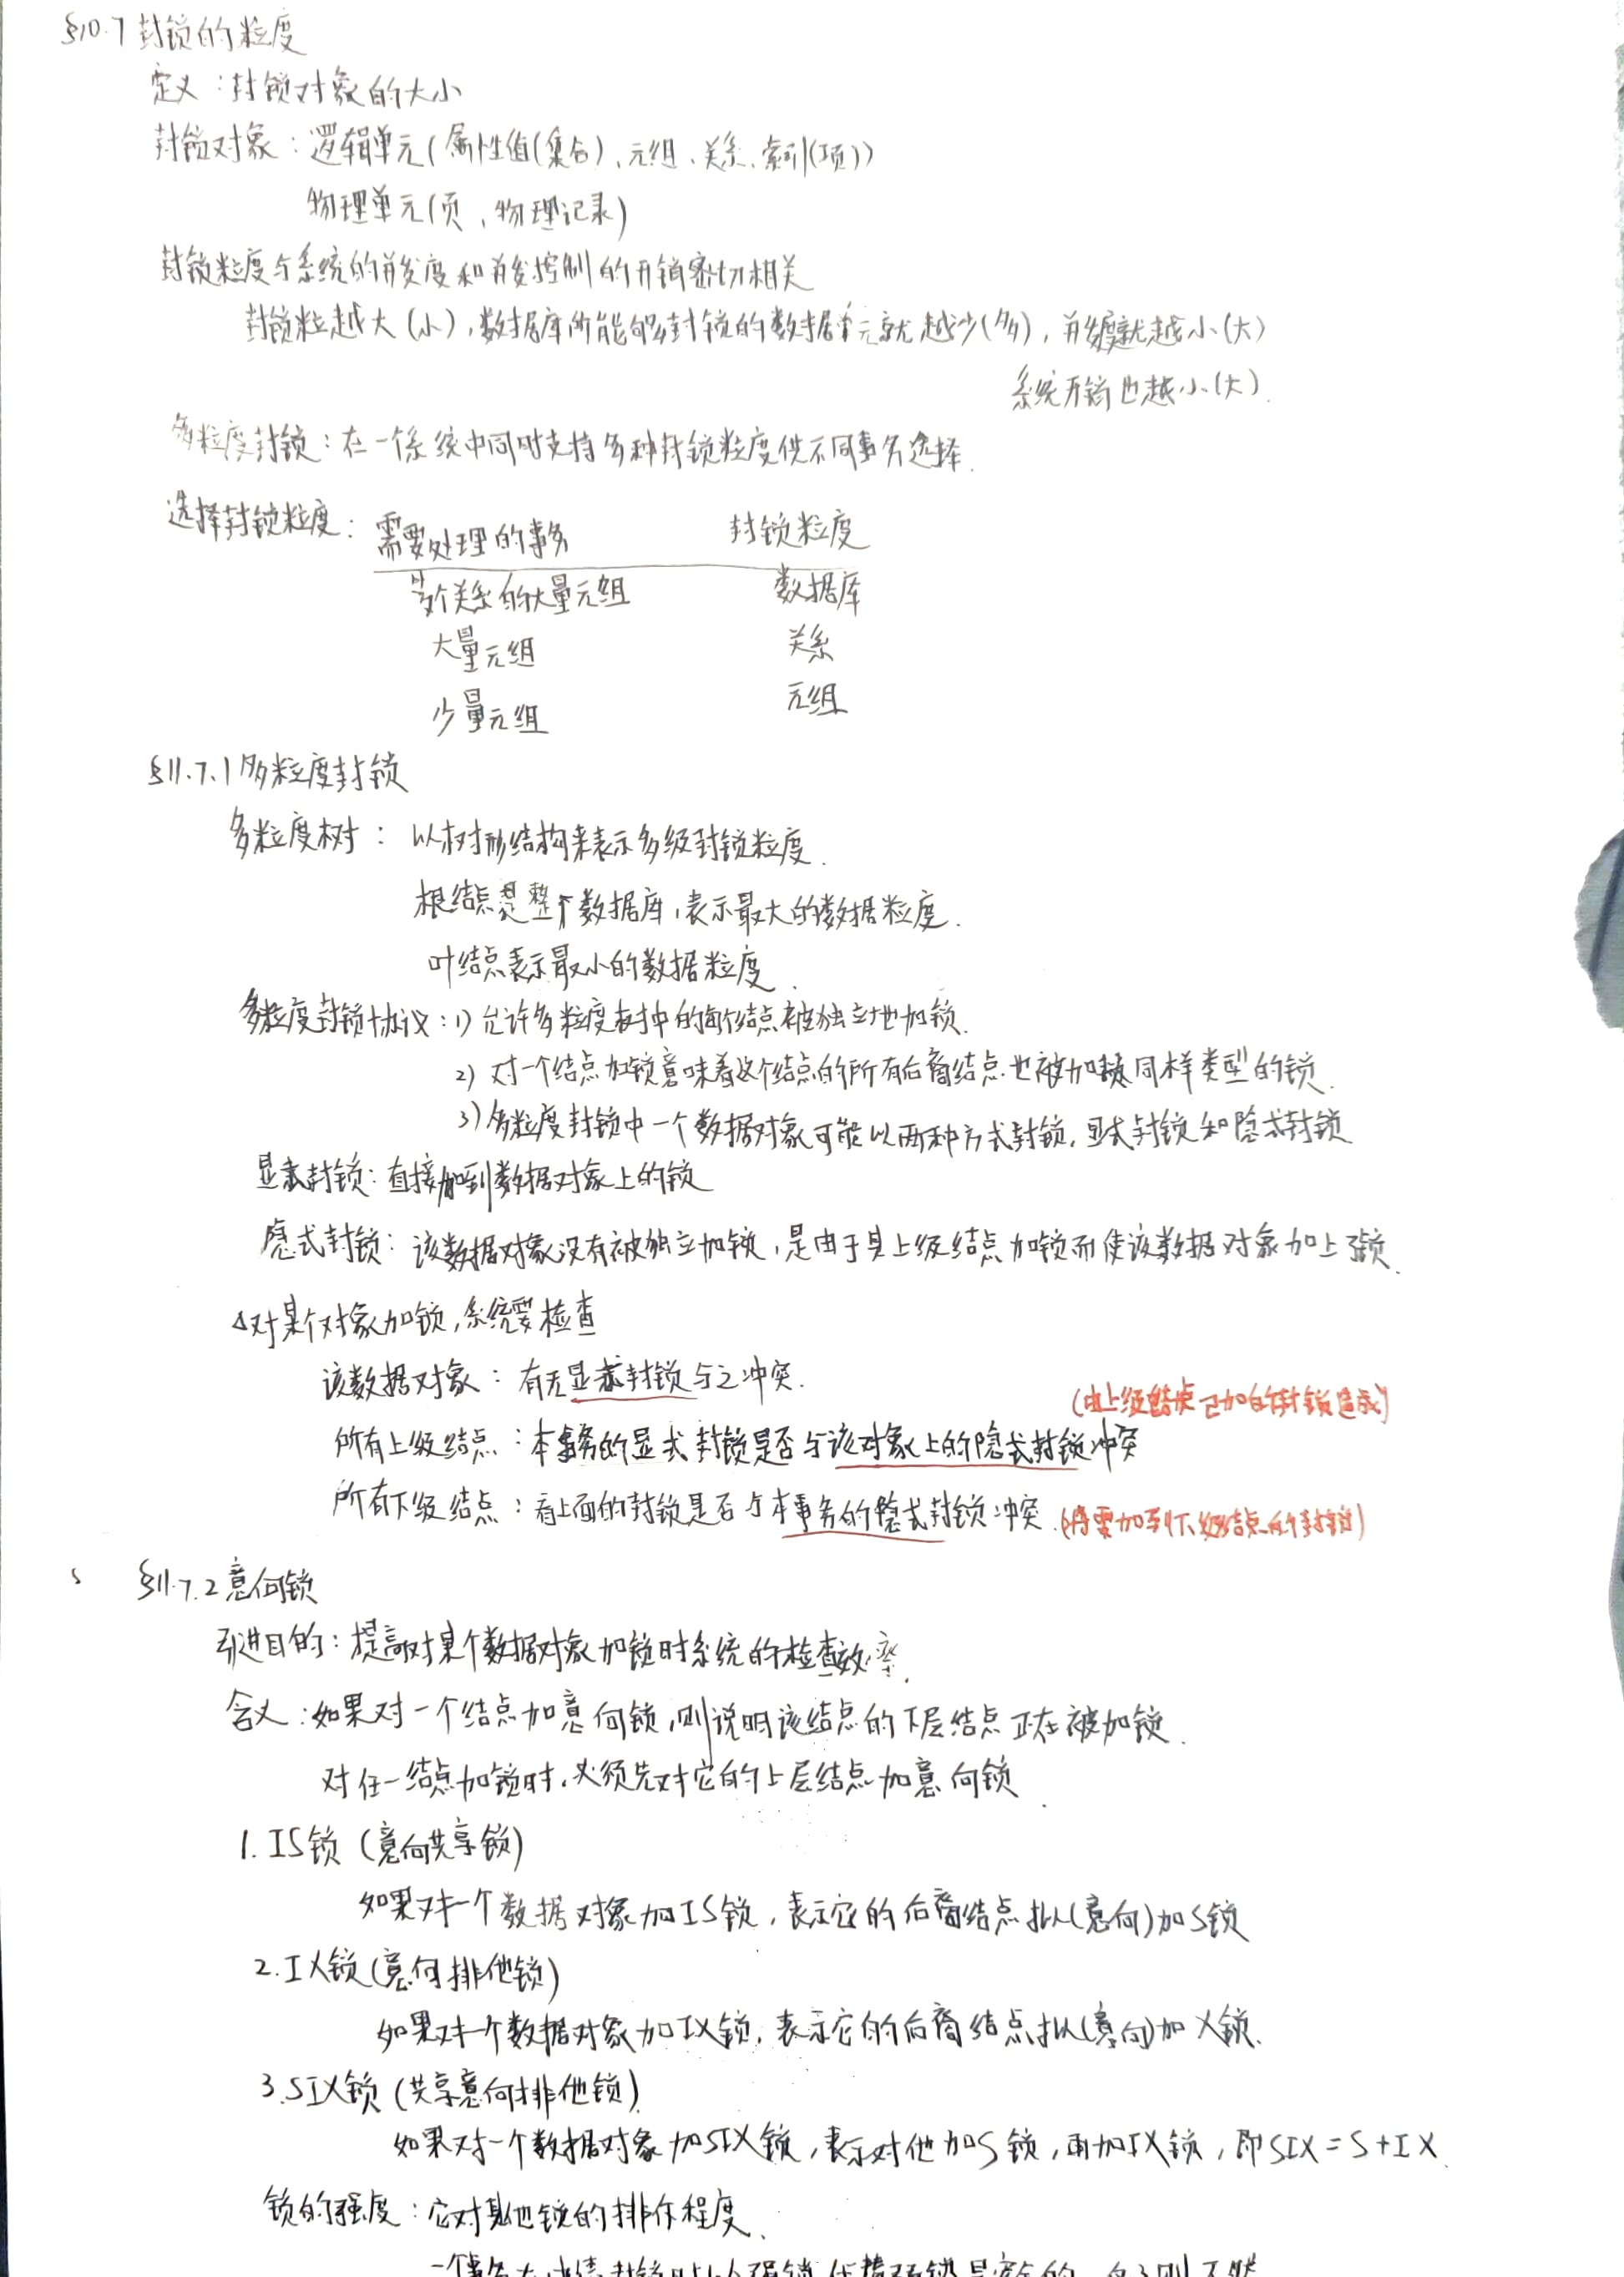 §10.7 封锁的粒度
定义：封锁对象的大小
封锁对象：逻辑单元(属性值(集合)、元组、关系、索引(项))
物理单元(页、物理记录)
封锁粒度与系统的并发度和并发控制的开销密切相关
封锁粒越大(小)，数据库所能够封锁的数据单元就越少(多)，并发度就越小(大)
系统开销也越小(大).
多粒度封锁：在一个系统中同时支持多种封锁粒度供不同事务选择.
选择封锁粒度：需要处理的事务 封锁粒度
多个关系的大量元组 数据库
大量元组 关系
少量元组 元组
§11.7.1 多粒度封锁
多粒度树：以树形结构来表示多级封锁粒度.
根结点是整个数据库，表示最大的数据粒度.
叶结点表示最小的数据粒度.
多粒度封锁协议：1) 允许多粒度树中的每个结点被独立地加锁.
2) 对一个结点加锁意味着这个结点的所有后裔结点也被加同样类型的锁.
3) 多粒度封锁中一个数据对象可能以两种方式封锁，显式封锁和隐式封锁
显式封锁：直接加到数据对象上的锁
隐式封锁：该数据对象没有被独立加锁，是由于其上级结点加锁而使该数据对象加上了锁.
△对某个对象加锁，系统要检查
该数据对象：有无显式封锁与之冲突.
(由上级结点已加的封锁造成)
所有上级结点：本事务的显式封锁是否与该对象上的隐式封锁冲突
所有下级结点：看上面的封锁是否与本事务的隐式封锁冲突.(将要加到下级结点的封锁)
§11.7.2 意向锁
引进目的：提高对某个数据对象加锁时系统的检查效率.
含义：如果对一个结点加意向锁，则说明该结点的下层结点正在被加锁.
对任一结点加锁时，必须先对它的上层结点加意向锁.
1. IS锁 (意向共享锁)
如果对一个数据对象加IS锁，表示它的后裔结点拟(意向)加S锁
2. IX锁(意向排他锁)
如果对一个数据对象加IX锁，表示它的后裔结点拟(意向)加X锁.
3. SIX锁 (共享意向排他锁)
如果对一个数据对象加SIX锁，表示对他加S锁，再加IX锁，即SIX=S+IX.
锁的强度：它对其他锁的排斥程度.
一个事务在申请封锁时以强锁代替弱锁是安全的，反之则不然